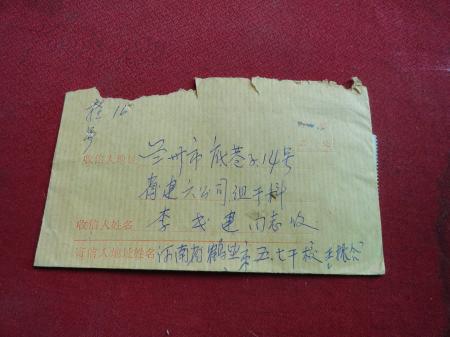 16
号
收信人地址 兰州市底巷子14号
省建六公司组干科
收信人姓名 李建同志收
寄信人地址姓名 河南省鹤壁市五七干校